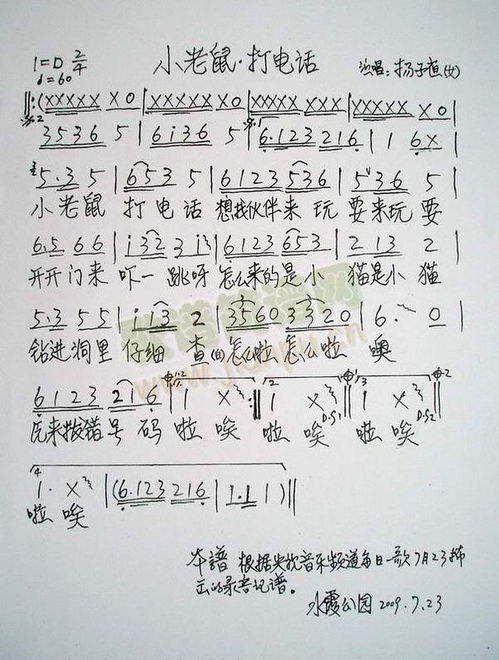 1=D 2/4 小老鼠·打电话 演唱:杨子直(女)
♩=60
‖:(XXXXX X0 | XXXXX X0 | XXXXX XXX | XXXXX X0 |
3536 5 | 6i36 5 | 6.123 216 | 1 6X |
5.3 5 | 653 5 | 6123 536 | 536 5 |
小老鼠 打电话 想找伙伴来 玩 要来玩 要
6.5 66 | i32 3 i3 | 6123 653 | 2 13 2 |
开开门来 吓一跳呀 怎么来的是小 猫是小 猫
5.3 55 | i13 2 | 3560 3320 | 6. 0 |
钻进洞里 仔细 查问怎么啦 怎么啦 噢
6123 216 | 1 X :‖ 1 X ‖ 1 X ‖
原来拨错号 码 啦 唉 啦 唉 啦 唉
1. X | (6.123 216 | 1.1 1 )‖
啦 唉
本譜根据央视音乐频道每日一歌7月23播
出的录音记谱。
水霞公园 2009.7.23